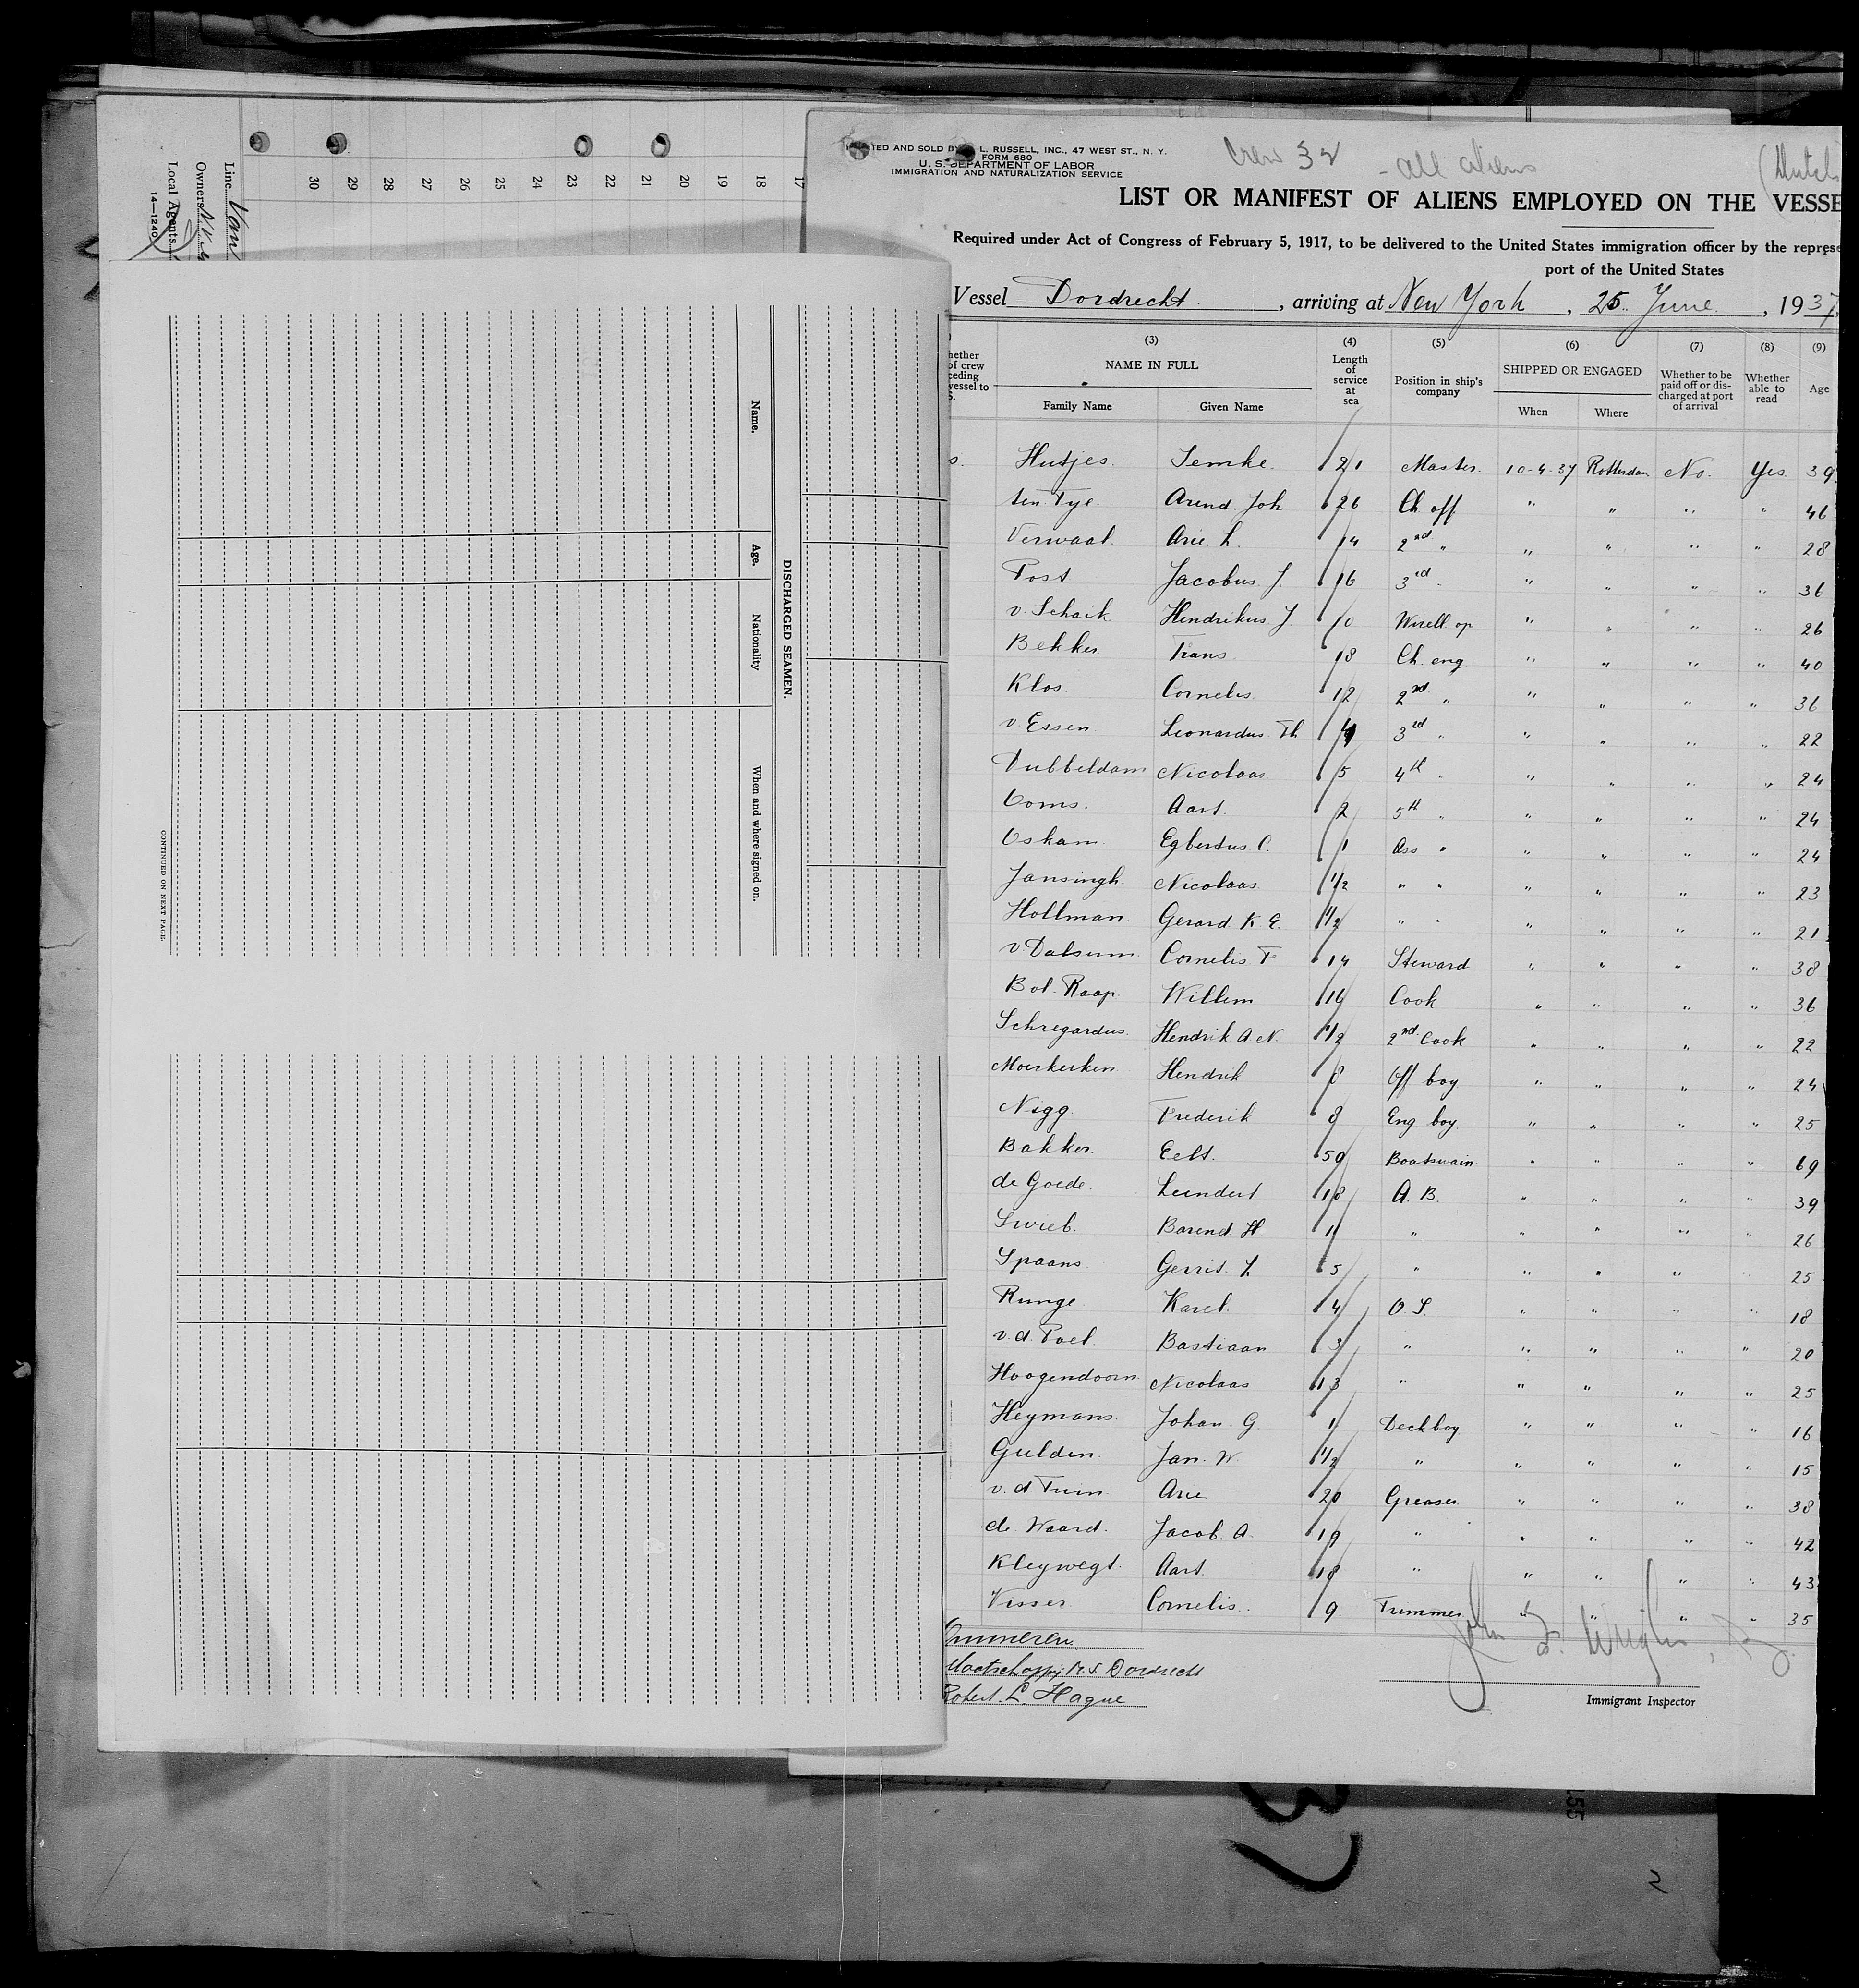 L. RUSSELL, INC., 47 WEST ST., N. Y.
FORM 680
U. S. DEPARTMENT OF LABOR
IMMIGRATION AND NATURALIZATION SERVICE
Crew 32 - all aliens
LIST OR MANIFEST OF ALIENS EMPLOYED ON THE VESSE
Required under Act of Congress of February 5, 1917, to be delivered to the United States immigration officer by the represe
port of the United States
Vessel Dordrecht, arriving at New York, 25 June, 1937
(3) (4) (5) (6) (7) (8) (9)
NAME IN FULL Length of service at sea Position in ship's company SHIPPED OR ENGAGED Whether to be paid off or discharged at port of arrival Whether able to read Age
Family Name Given Name When Where
Hutjes Semke 21 Master 10-4-37 Rotterdam No. Yes. 39
ten Tye Arend Joh 26 Ch. off " " " " 46
Verwaal Arie L. 14 2nd " " " " " 28
Post Jacobus J. 16 3rd " " " " " 36
v. Schaik Hendrikus J. 10 Wirell. op " " " " 26
Bekker Frans 18 Ch. eng " " " " 40
Klos Cornelis 12 2nd " " " " " 36
v. Essen Leonardus Th 4 3rd " " " " " 22
Dubbeldam Nicolaas 5 4th " " " " " 24
Ooms. Aart. 2 5th " " " " " 24
Oskam Egbertus C. 1 Ass " " " " " 24
Jansingh Nicolaas 1/2 " " " " " " 23
Hollman. Gerard K. E. 1/2 " " " " " " 21
v. Dalsum Cornelis F 14 Steward " " " " 38
Bol-Raap Willem 16 Cook " " " " 36
Schregardus Hendrik A. N. 1/2 2nd Cook " " " " 22
Moerkerken Hendrik 8 Off boy " " " " 24
Nigg Frederik 8 Eng. boy " " " " 25
Bakker Eelt. 50 Boatswain " " " " 69
de Goede Leendert 18 A. B. " " " " 39
Swieb. Barend H. 1 " " " " " 26
Spaans Gerrit L 5 " " " " " 25
Runge Karel 4 O. S. " " " " 18
v. d. Poel Bastiaan 3 " " " " " 20
Hoogendoorn Nicolaas 13 " " " " " 25
Heymans Johan G 1 Deckboy " " " " 16
Gulden Jan. W. 1/2 " " " " " 15
v. d Tuin Arie 20 Greaser " " " " 38
de Waard. Jacob. A. 19 " " " " " 42
Kleywegt. Aart. 18 " " " " " 43
Visser Cornelis. 9 Trimmer " " " " 35
Maatschappij N.V. Dordrecht
Robert L. Hague
Immigrant Inspector
Line Van
Owners
Local Agents
14—1240
17
18
19
20
21
22
23
24
25
26
27
28
29
30
DISCHARGED SEAMEN.
Name. Age. Nationality When and where signed on.
CONTINUED ON NEXT PAGE.
55